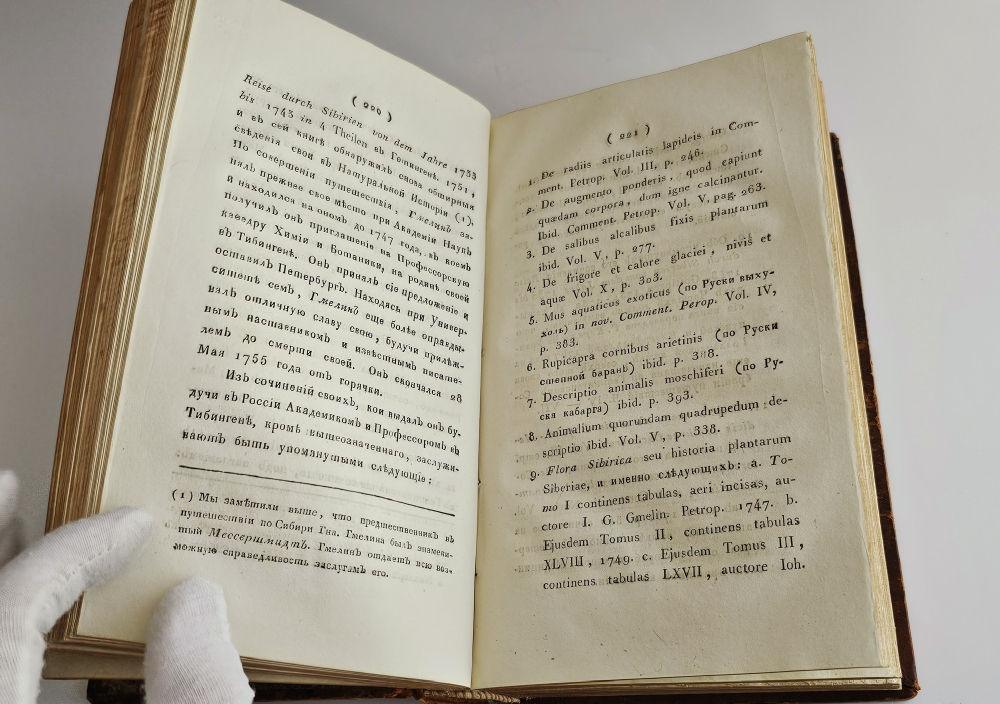 ( 220 )
Reise durch Sibirien von dem Jahre 1733
bis 1743 in 4 Theilen въ Геттингенѣ. 1751,
и въ сей книгѣ обнаружилъ снова обширныя
свѣденія свои въ Натуральной Исторіи (1).
По совершеніи путешествія, Гмелинъ за-
нялъ прежнее свое мѣсто при Академіи Наукъ
и находился на ономъ до 1747 года, въ коемъ
получилъ онъ приглашеніе на Профессорскую
каѳедру Химіи и Ботаники, на родинѣ своей
въ Тибингенѣ. Онъ принялъ сіе предложеніе и
оставилъ Петербургъ. Находясь при Универ-
ситетѣ семъ, Гмелинъ еще болѣе оправды-
валъ отличную славу свою, будучи прилѣж-
нымъ наставникомъ и извѣстнымъ писате-
лемъ до смерти своей. Онъ скончался 28
Мая 1755 года отъ горячки.
Изъ сочиненій своихъ, кои выдалъ онъ бу-
дучи въ Россіи Академикомъ и Профессоромъ въ
Тибингенѣ, кромѣ вышеозначеннаго, заслужи-
ваютъ быть упомянутыми слѣдующіе:
(1) Мы замѣтили выше, что предшественникъ въ
путешествіи по Сибири Гна. Гмелина былъ знамени-
тый Мессершмидтъ. Гмелинъ отдаетъ всю воз-
можную справедливость заслугамъ его.
( 221 )
1. De radiis articulatis lapideis in Com-
ment. Petrop. Vol. III, p. 246.
2. De augmento ponderis, quod capiunt
quædam corpora, dum igne calcinantur.
Ibid. Comment. Petrop. Vol. V, pag. 263.
3. De salibus alcalibus fixis plantarum
ibid. Vol. V, p. 277.
4. De frigore et calore glaciei, nivis et
aquæ Vol. X, p. 303.
5. Mus aquaticus exoticus (по Руски выху-
холь) in nov. Comment. Perop. Vol. IV,
p. 383.
6. Rupicapra cornibus arietinis (по Руски
степной баранъ) ibid. p. 388.
7. Descriptio animalis moschiferi (по Ру-
ски кабарга) ibid. p. 393.
8. Animalium quorundam quadrupedum de-
scriptio ibid. Vol. V, p. 338.
9. Flora Sibirica seu historia plantarum
Siberiae, и именно слѣдующихъ: a. To-
mo I continens tabulas, aeri incisas, au-
ctore I. G. Gmelin. Petrop. 1747. b.
Ejusdem Tomus II, continens tabulas
XLVIII, 1749. c. Ejusdem Tomus III,
continens tabulas LXVII, auctore Ioh.